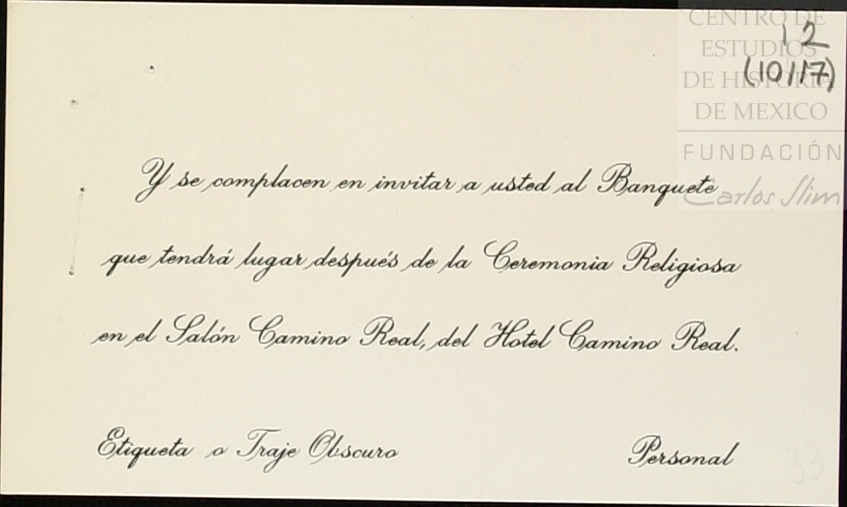 CENTRO DE
ESTUDIOS
DE HISTORIA
DE MEXICO
FUNDACIÓN
Carlos Slim
12
(10/17)
Y se complacen en invitar a usted al Banquete
que tendrá lugar después de la Ceremonia Religiosa
en el Salón Camino Real, del Hotel Camino Real.
Etiqueta o Traje Obscuro
Personal
33